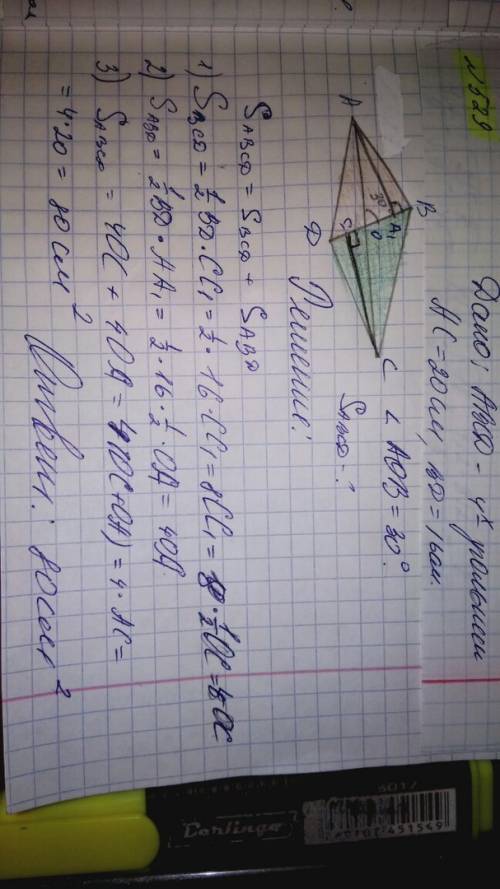 № 529
Дано: ABCD - 4х угольник
AC = 20 см, BD = 16 см.
∠ AOB = 30°.
SABCD - ?
A
B
C
D
A₁
O
C₁
30°
Решение:
SABCD = SBCD + SABD
1) SBCD = ½ BD · CC₁ = ½ · 16 · CC₁ = 8CC₁ = 8 · ½ OC = 4OC
2) SABD = ½ BD · AA₁ = ½ · 16 · ½ · OA = 4OA
3) SABCD = 4OC + 4OA = 4(OC + OA) = 4 · AC =
= 4 · 20 = 80 см²
Ответ: 80 см²
Berlingo